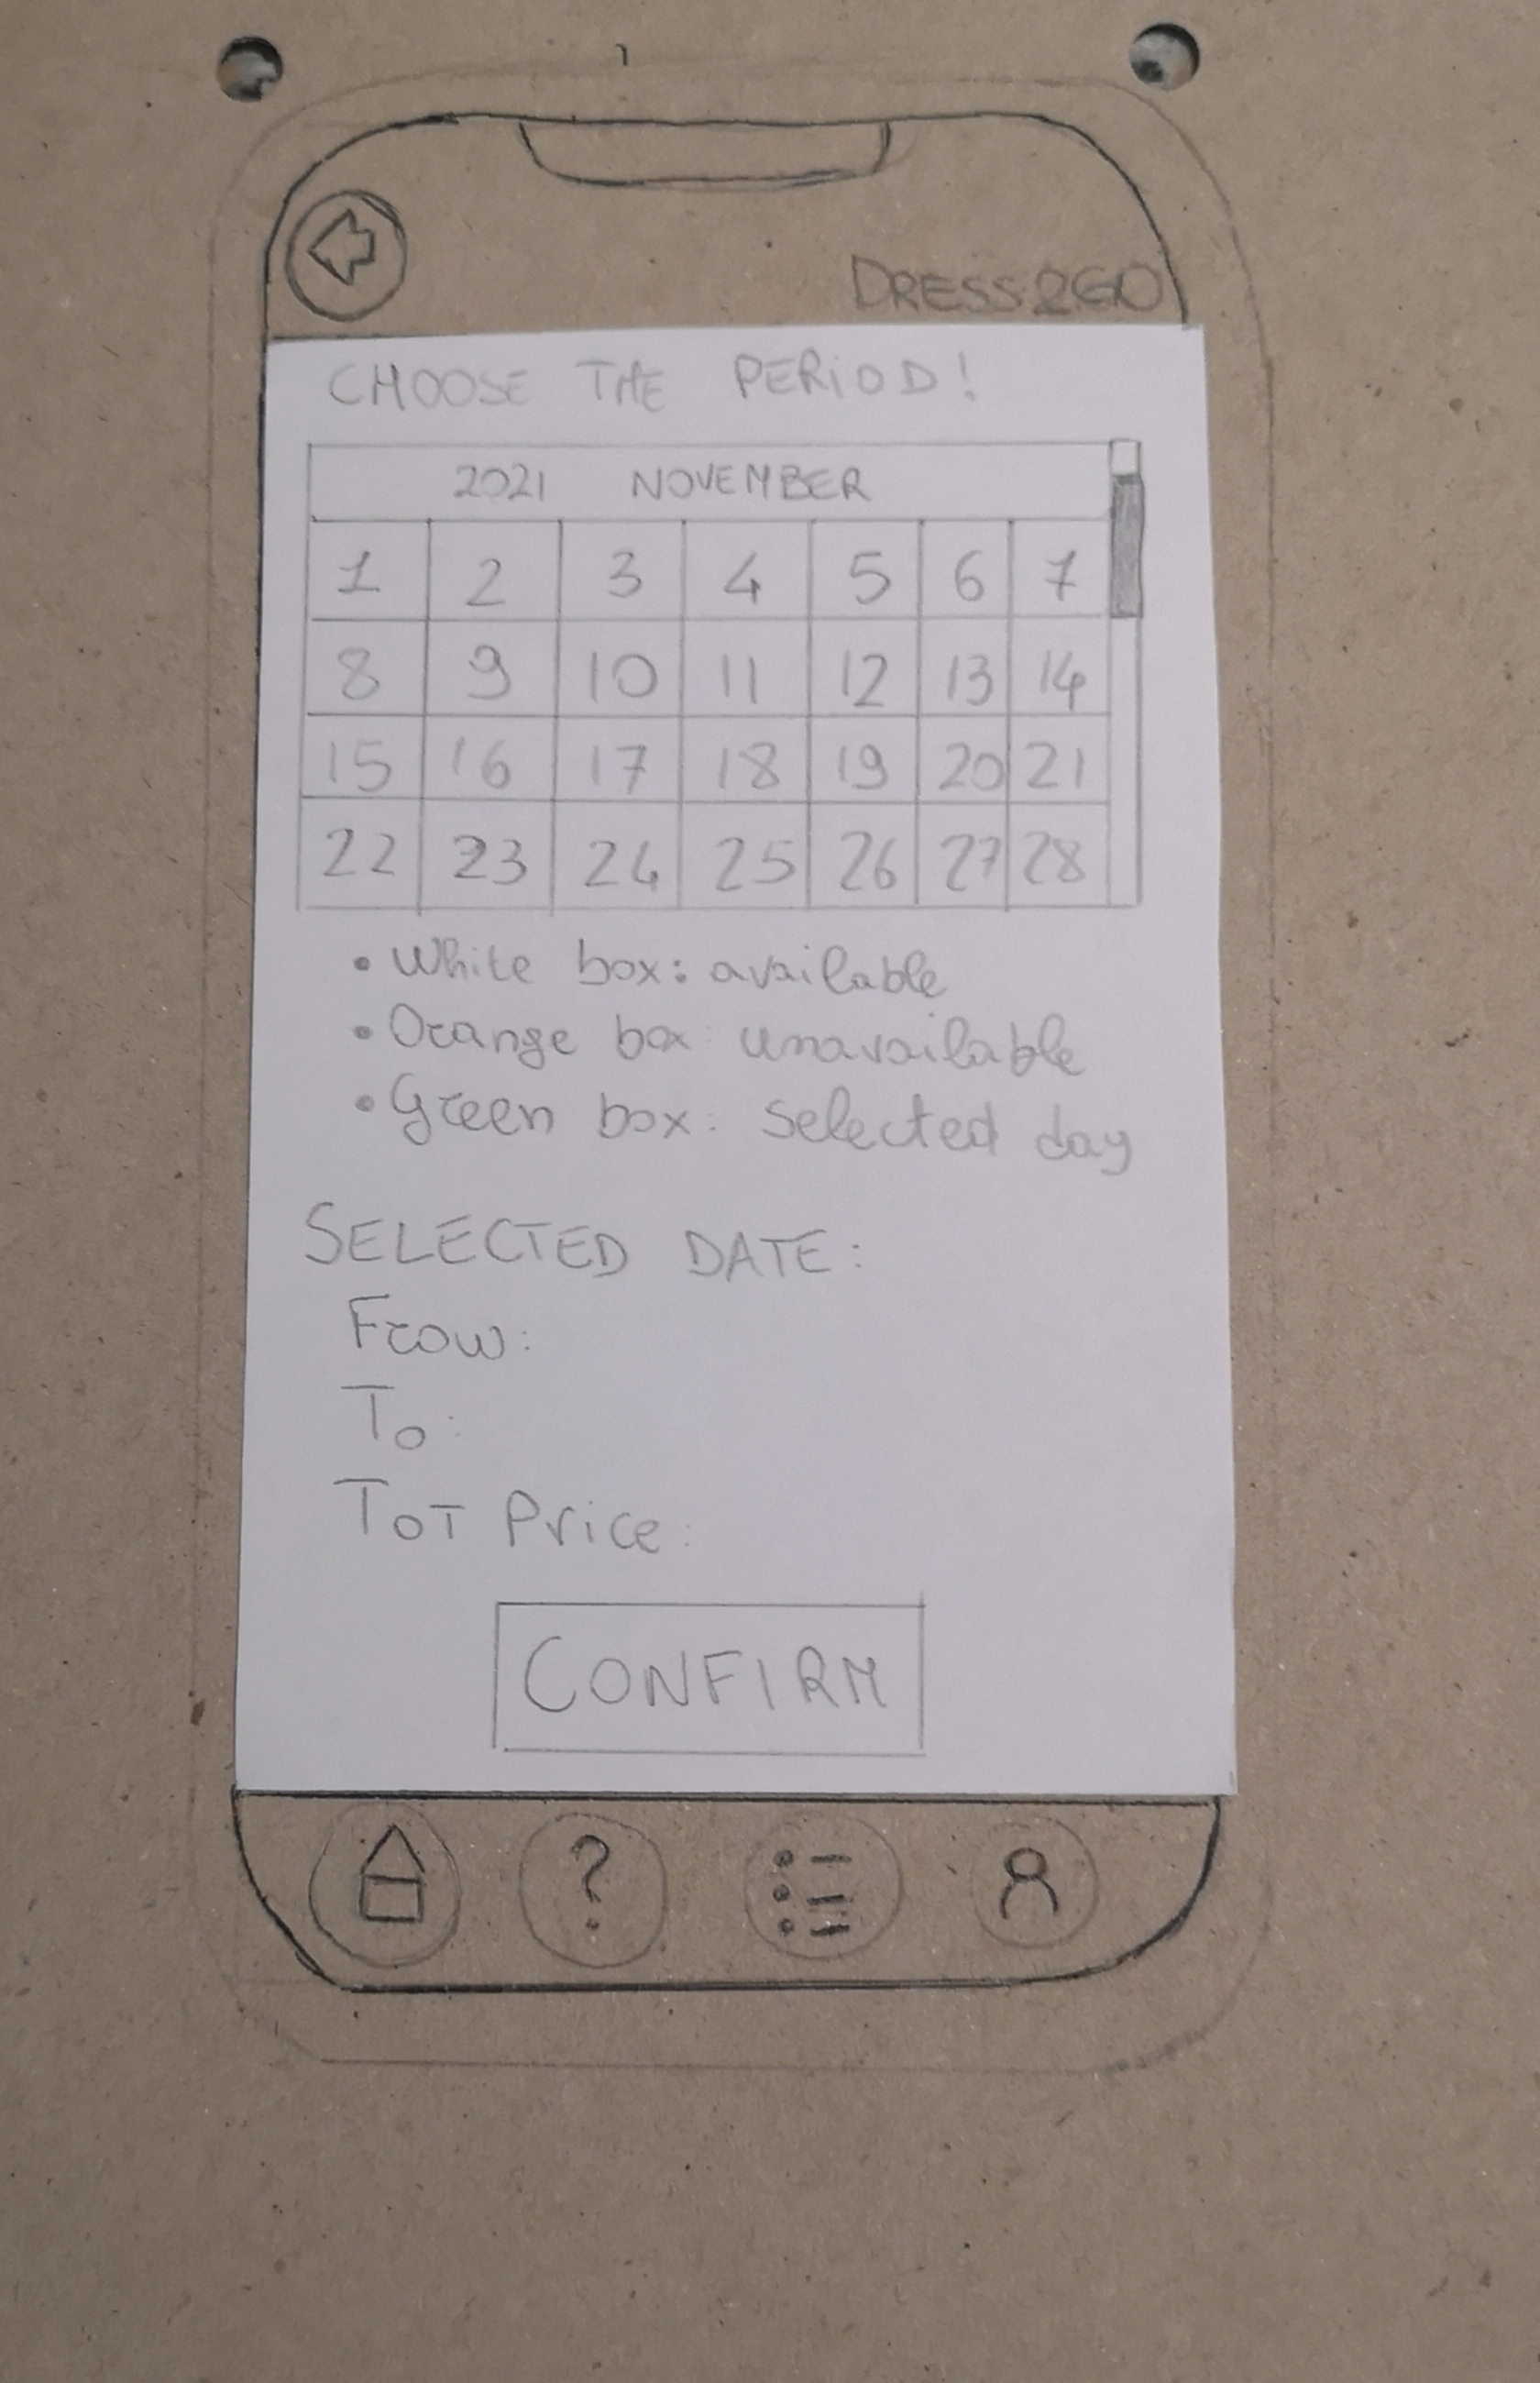 DRESS2GO
CHOOSE THE PERIOD!
2021 NOVEMBER
1 2 3 4 5 6 7
8 9 10 11 12 13 14
15 16 17 18 19 20 21
22 23 24 25 26 27 28
• White box: available
• Orange box: unavailable
• Green box: Selected day
SELECTED DATE:
From:
To:
TOT Price:
CONFIRM
?